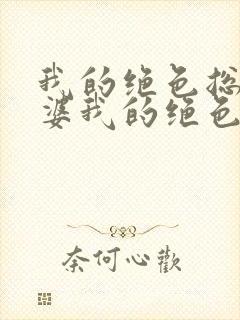 我的绝色总
婆我的绝色
奈何心歡